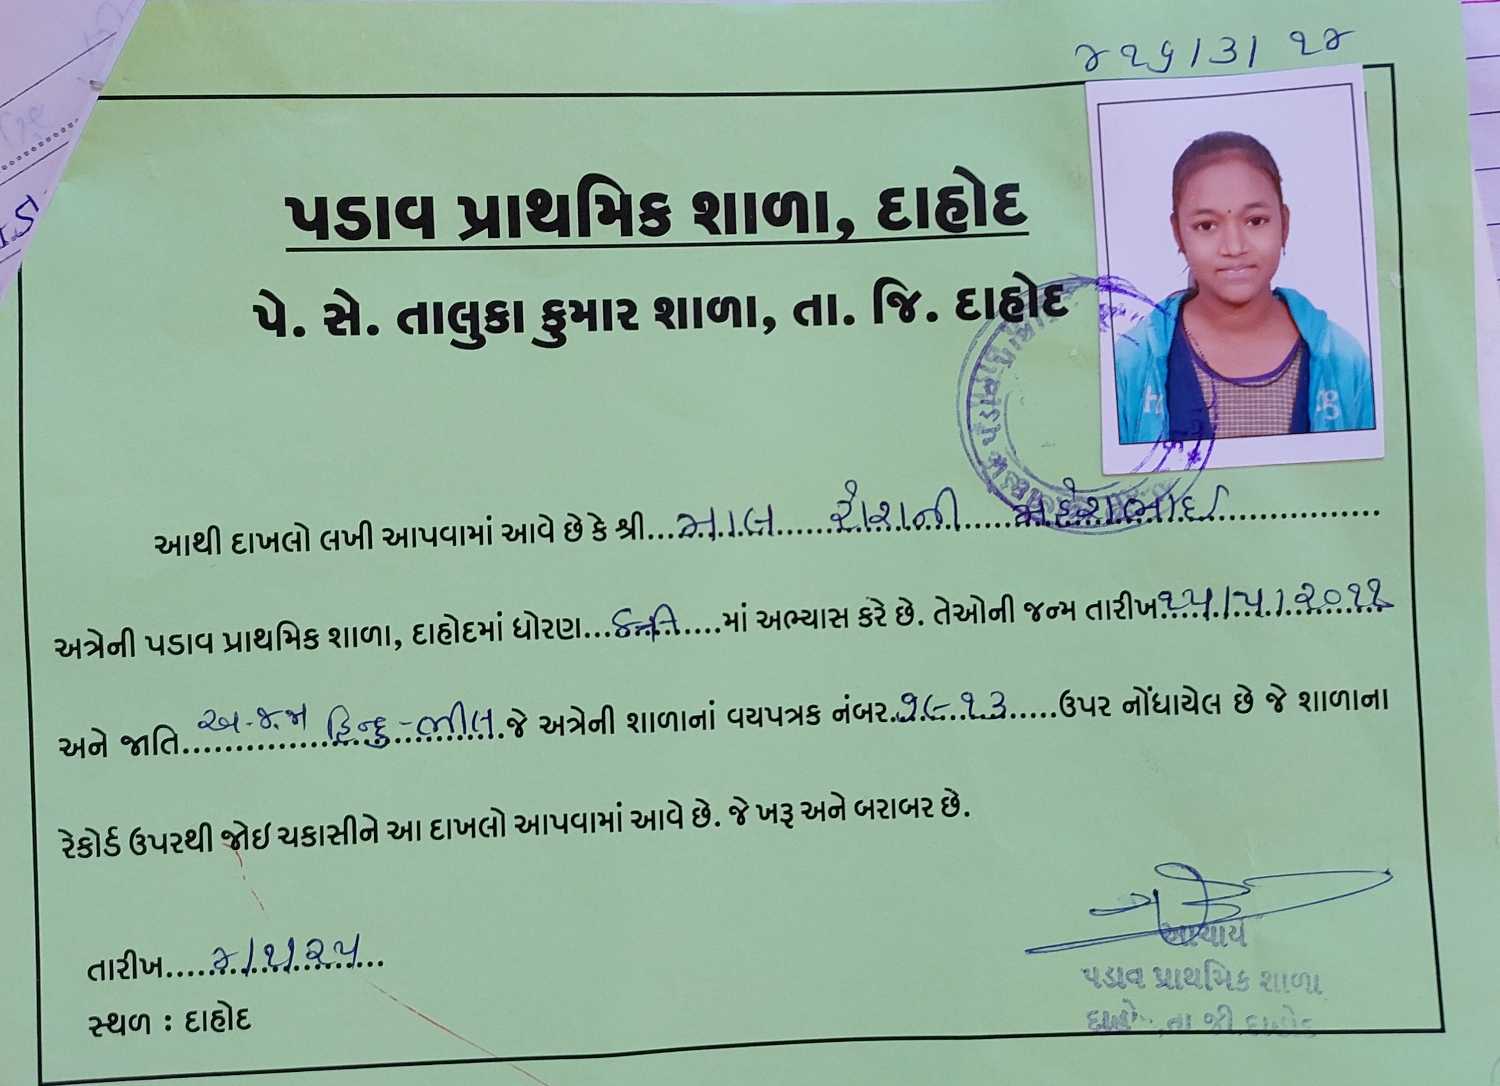 પડાવ પ્રાથમિક શાળા, દાહોદ
પે. સે. તાલુકા કુમાર શાળા, તા. જિ. દાહોદ
આથી દાખલો લખી આપવામાં આવે છે કે શ્રી...માલ.....રોશની.....મહેશભાઈ...............
અત્રેની પડાવ પ્રાથમિક શાળા, દાહોદમાં ધોરણ...૬ઠ્ઠી....માં અભ્યાસ કરે છે. તેઓની જન્મ તારીખ ૧૫/૫/૨૦૧૧
અને જાતિ અ.જ.જા હિન્દુ-ભીલ. જે અત્રેની શાળાનાં વયપત્રક નંબર..૧૯૧૩.....ઉપર નોંધાયેલ છે જે શાળાના
રેકોર્ડ ઉપરથી જોઈ ચકાસીને આ દાખલો આપવામાં આવે છે. જે ખરૂ અને બરાબર છે.
તારીખ....૪/૧/૨૫...
સ્થળ : દાહોદ
આચાર્ય
પડાવ પ્રાથમિક શાળા